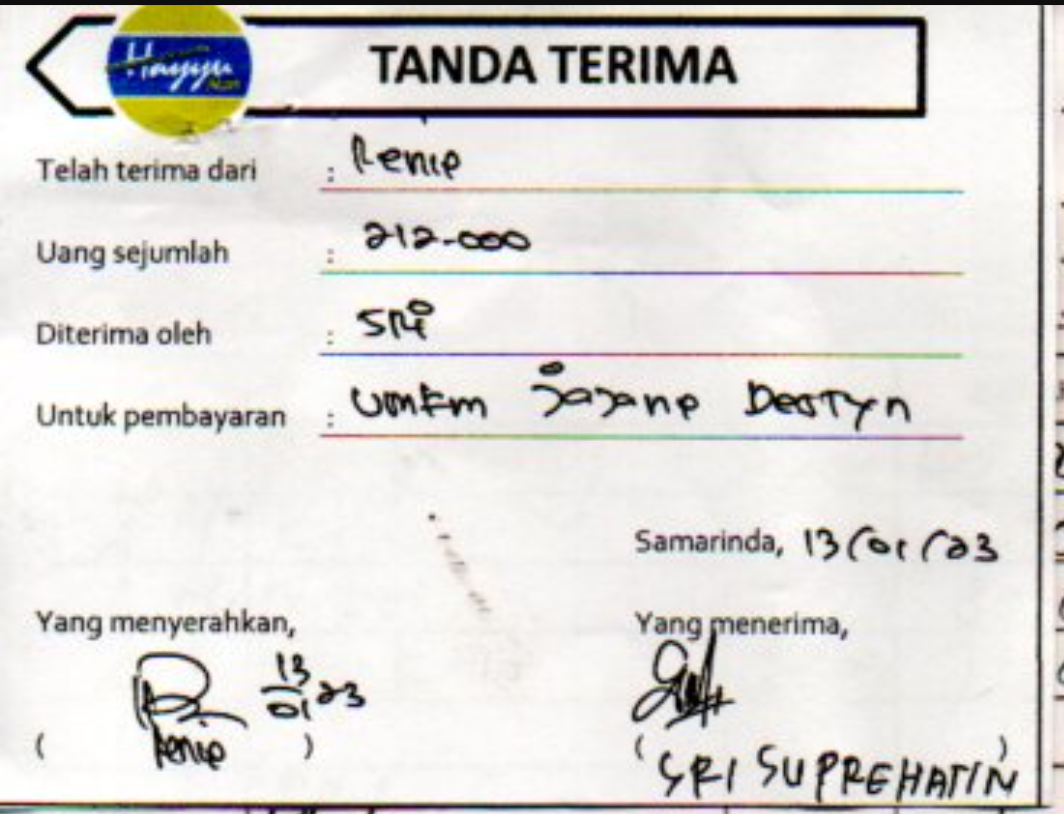 Hayyu
TANDA TERIMA
Telah terima dari : Renie
Uang sejumlah : 212.000
Diterima oleh : SRi
Untuk pembayaran : UMKM
Samarinda, 13/01/23
Yang menyerahkan, Yang menerima,
13/01 23
( Renie ) ( SRI SUPREHATIN )